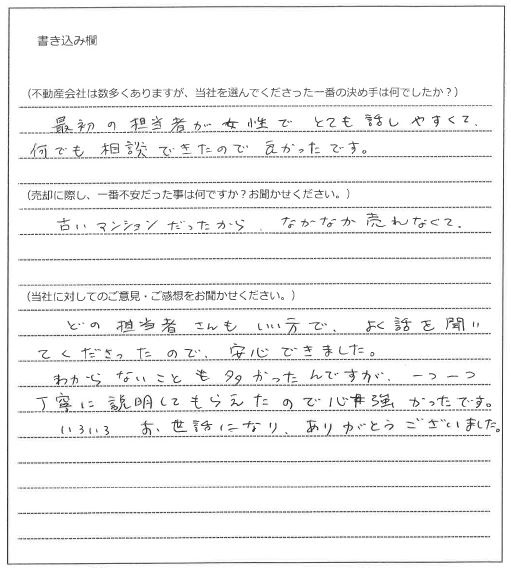 書き込み欄
(不動産会社は数多くありますが、当社を選んでくださった一番の決め手は何でしたか?)
最初の担当者が女性でとても話しやすくて、
何でも相談できたので良かったです。
(売却に際し、一番不安だった事は何ですか?お聞かせください。)
古いマンションだったから、なかなか売れなくて、
(当社に対してのご意見・ご感想をお聞かせください。)
どの担当者さんもいい方で、よく話を聞い
てくださったので、安心できました。
わからないことも多かったんですが、一つ一つ
丁寧に説明してもらえたので心強かったです。
いろいろお世話になり、ありがとうございました。